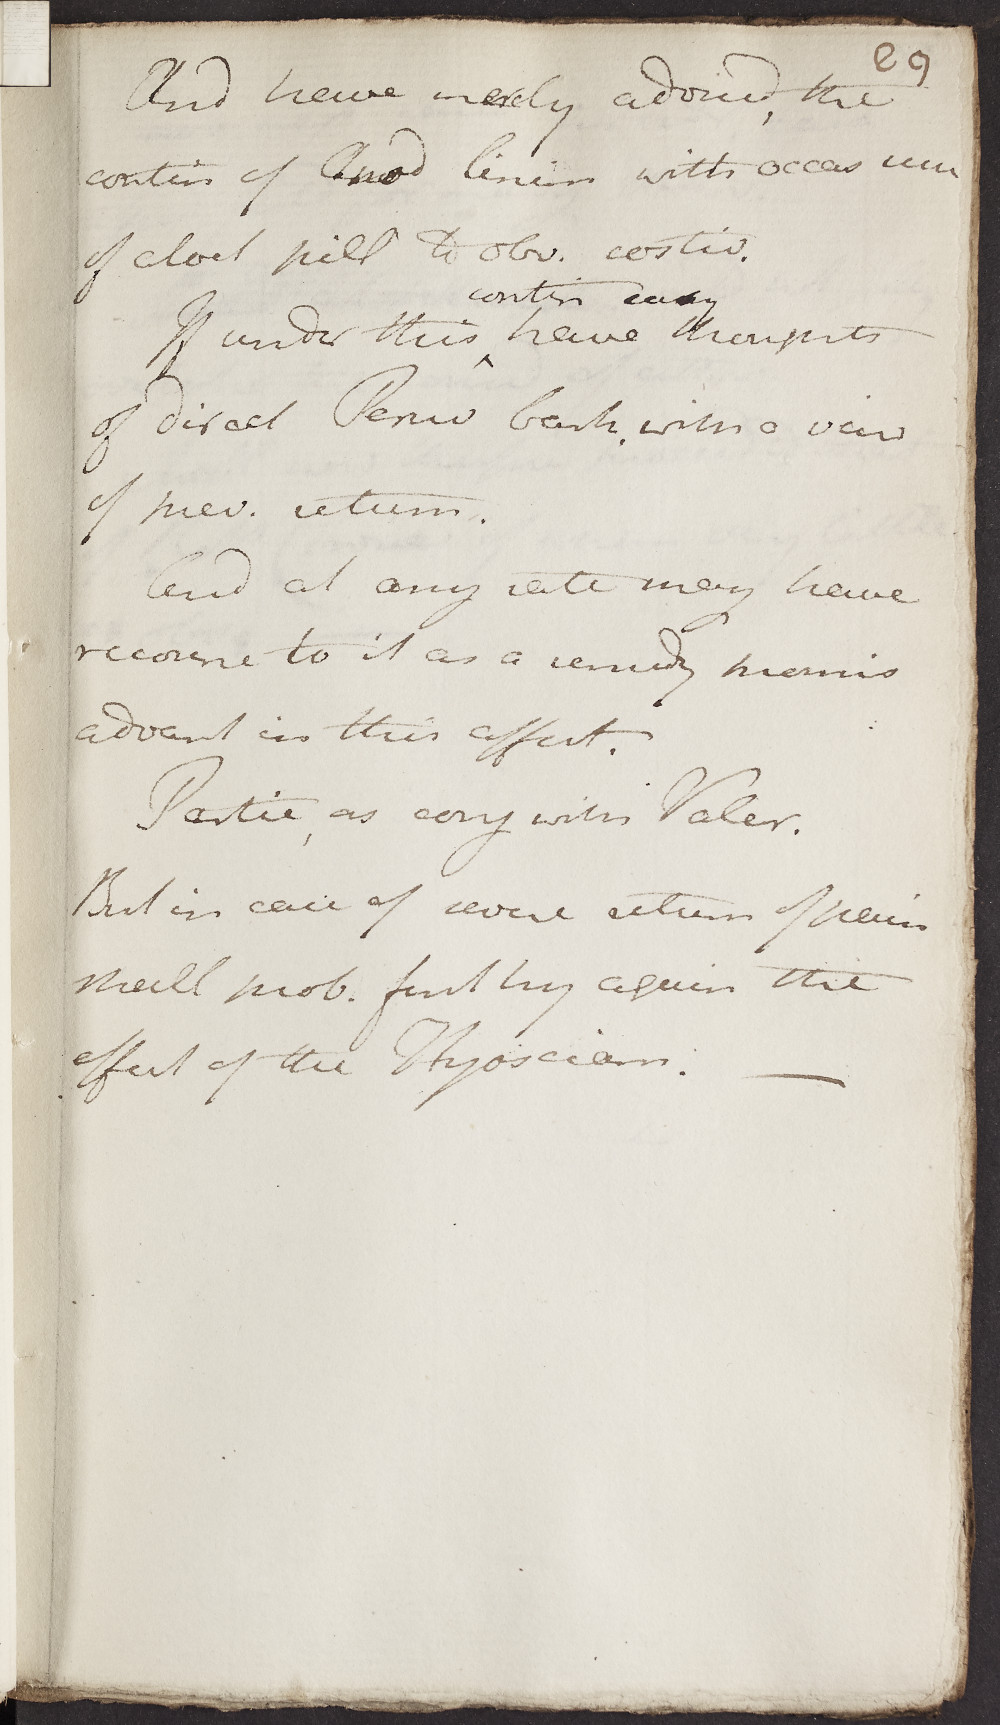 89
And have merely advised, the
contin of Anod linim with occas use
of aloet pill to obv. costiv.
contin easy
If under this ^ have thoughts
of direct Peruv bark, with a view
of prev. return.
And at any rate may have
recourse to it as a remedy promis
advant in this affect.
Partic, as conj with Valer.
But in case of severe return of pain
shall prob. first try again the
effect of the Hyosciam. —